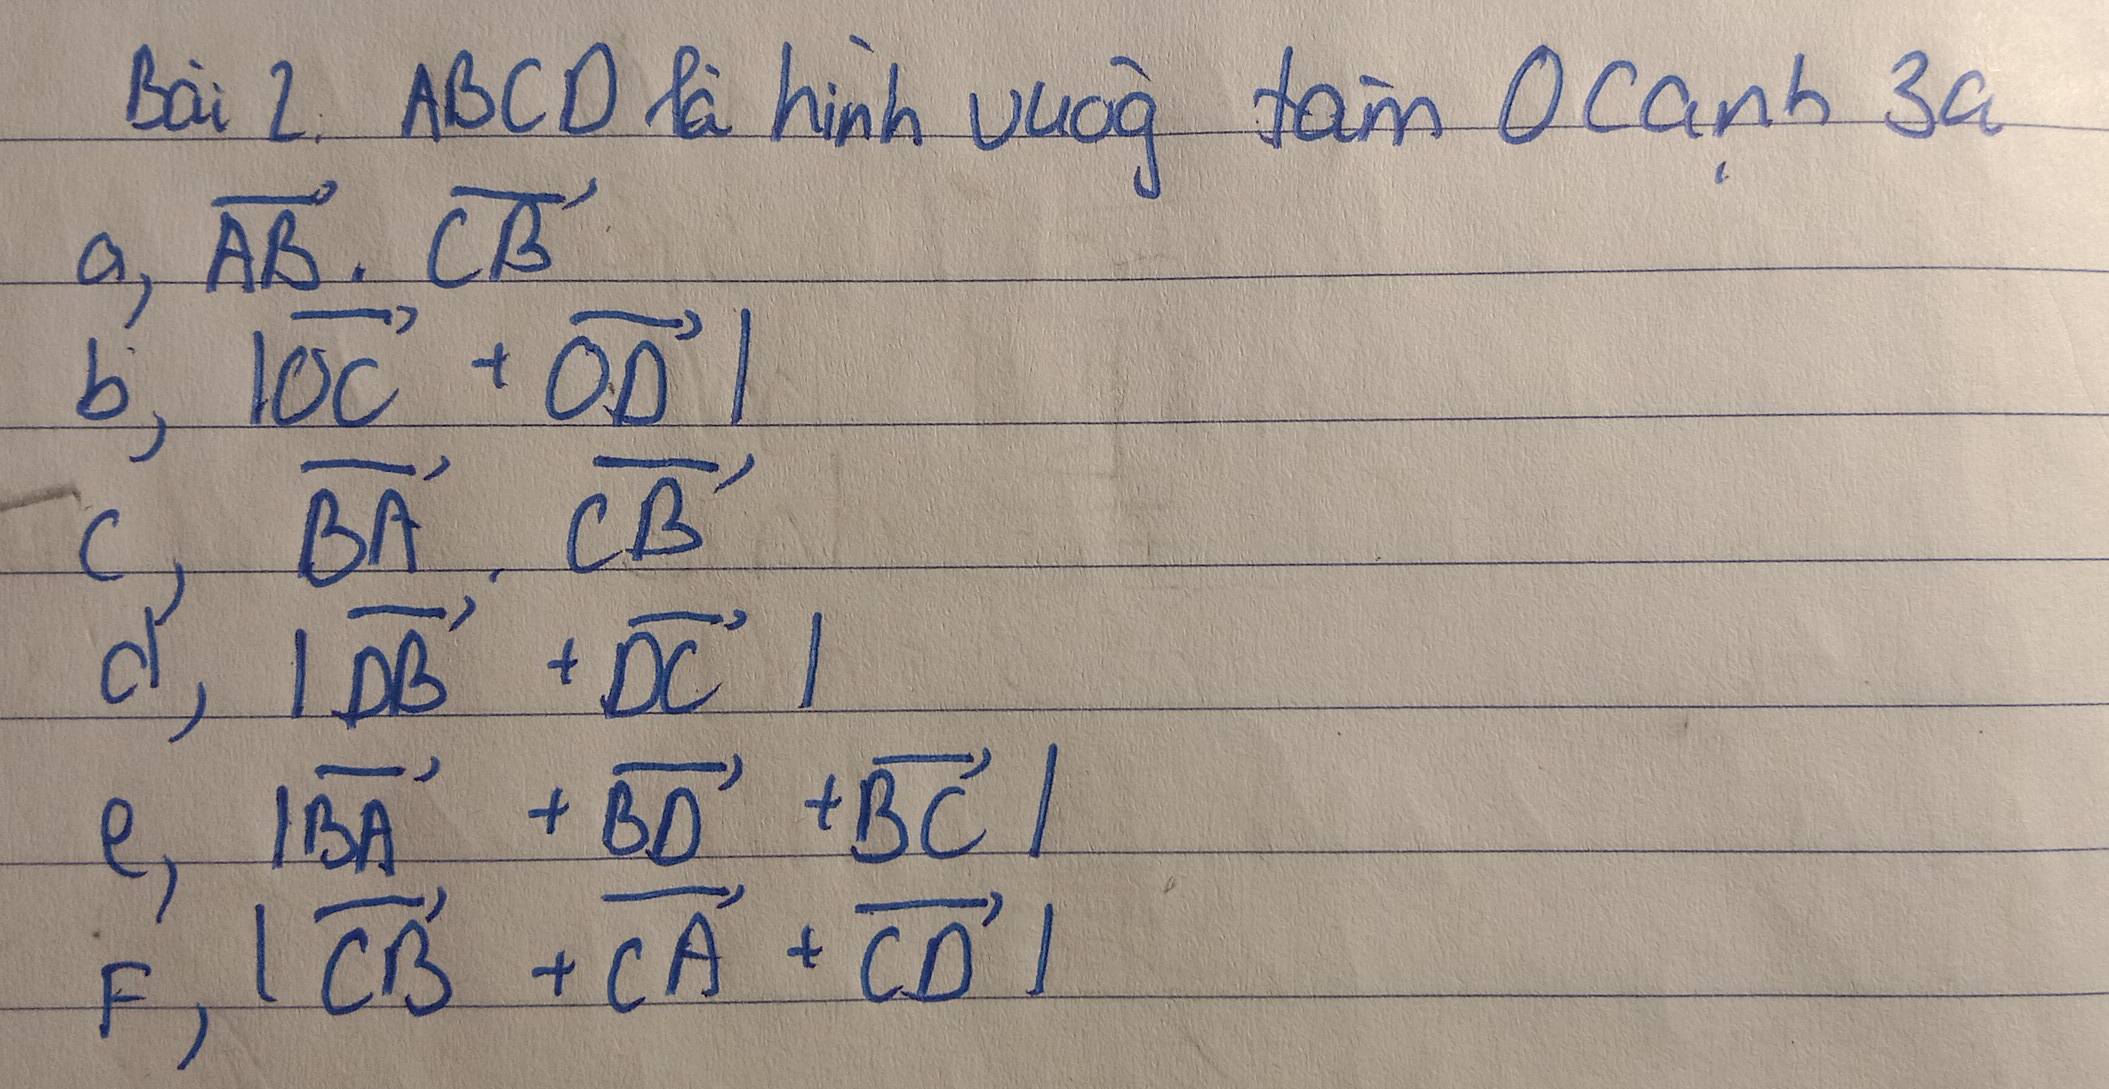 Bài 2. ABCD là hình vuôg tâm O cạnh 3a
a, \overrightarrow{AB} . \overrightarrow{CB}
b, |\overrightarrow{OC} + \overrightarrow{OD}|
c, \overrightarrow{BA} . \overrightarrow{CB}
d, |\overrightarrow{DB} + \overrightarrow{DC}|
e, |\overrightarrow{BA} + \overrightarrow{BD} + \overrightarrow{BC}|
F, |\overrightarrow{CB} + \overrightarrow{CA} + \overrightarrow{CD}|